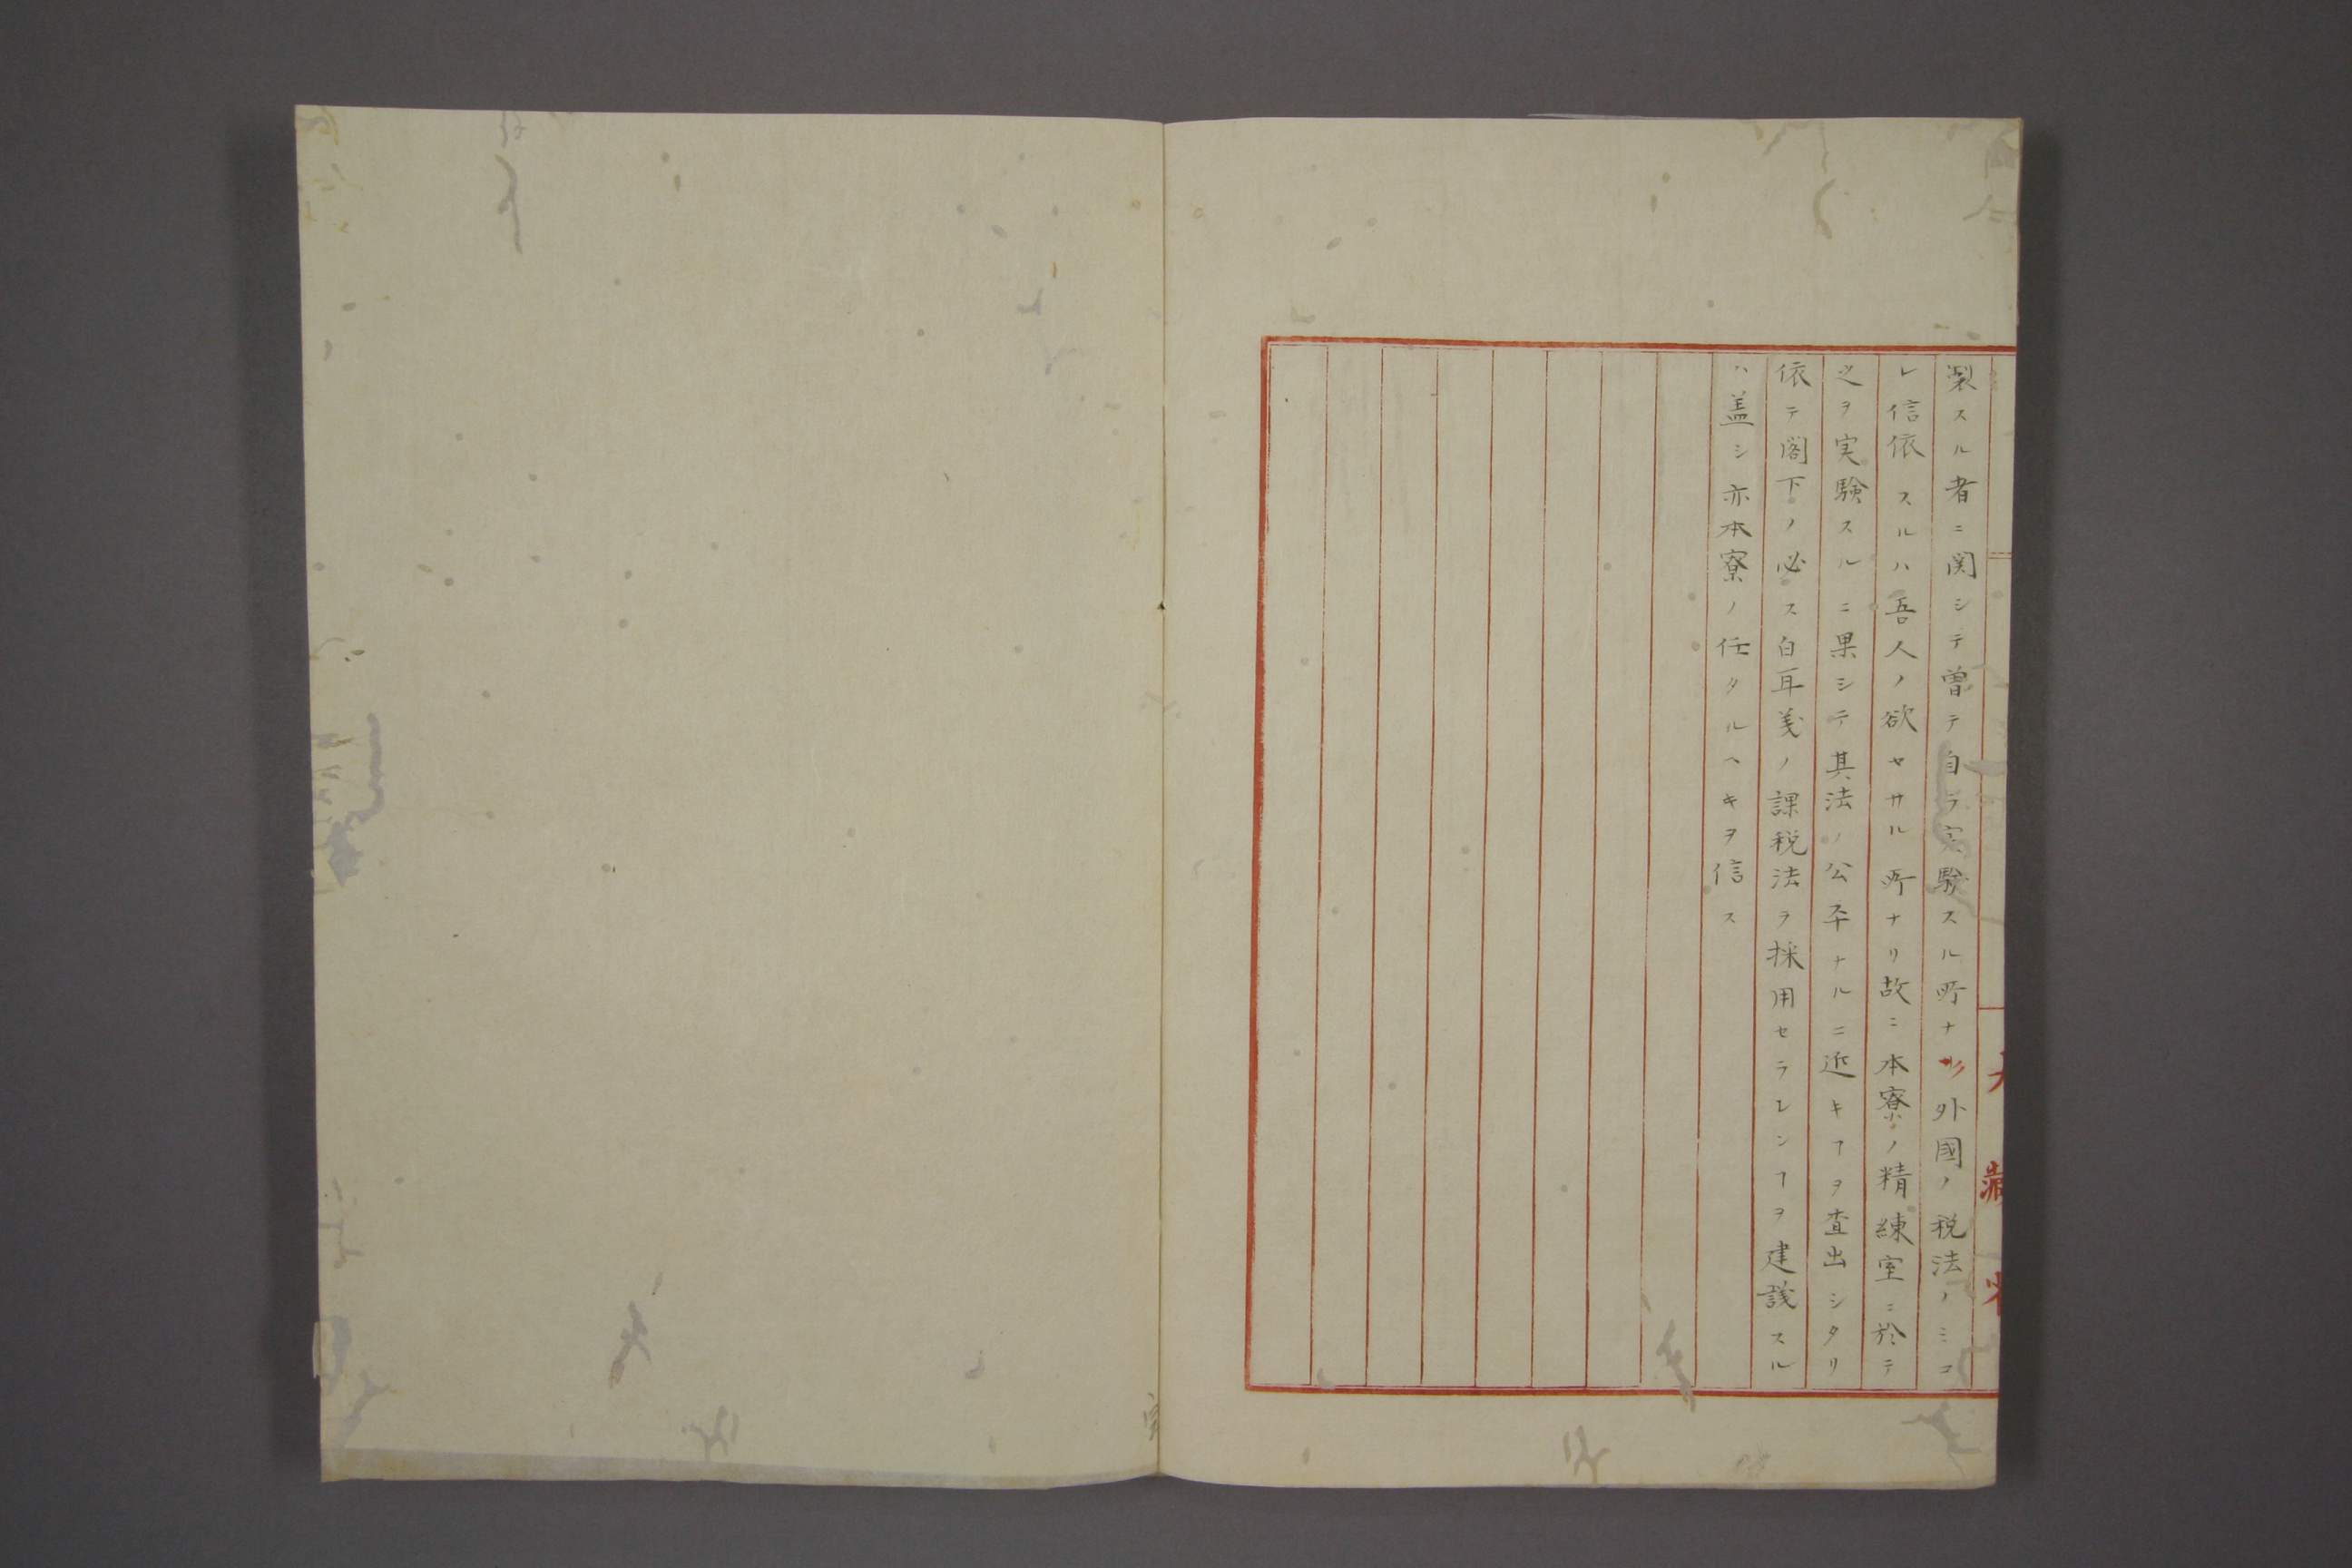 大藏省
製スル者ニ関シテ曽テ自ラ実験スル所ナク外國ノ税法ノミコ
レ信依スルハ吾人ノ欲セサル所ナリ故ニ本寮ノ精練室ニ於テ
之ヲ実験スルニ果シテ其法ノ公平ナルニ近キヿヲ査出シタリ
依テ閣下ノ必ス白耳義ノ課税法ヲ採用セラレンヿヲ建議スル
ハ盖シ亦本寮ノ任タルヘキヲ信ス